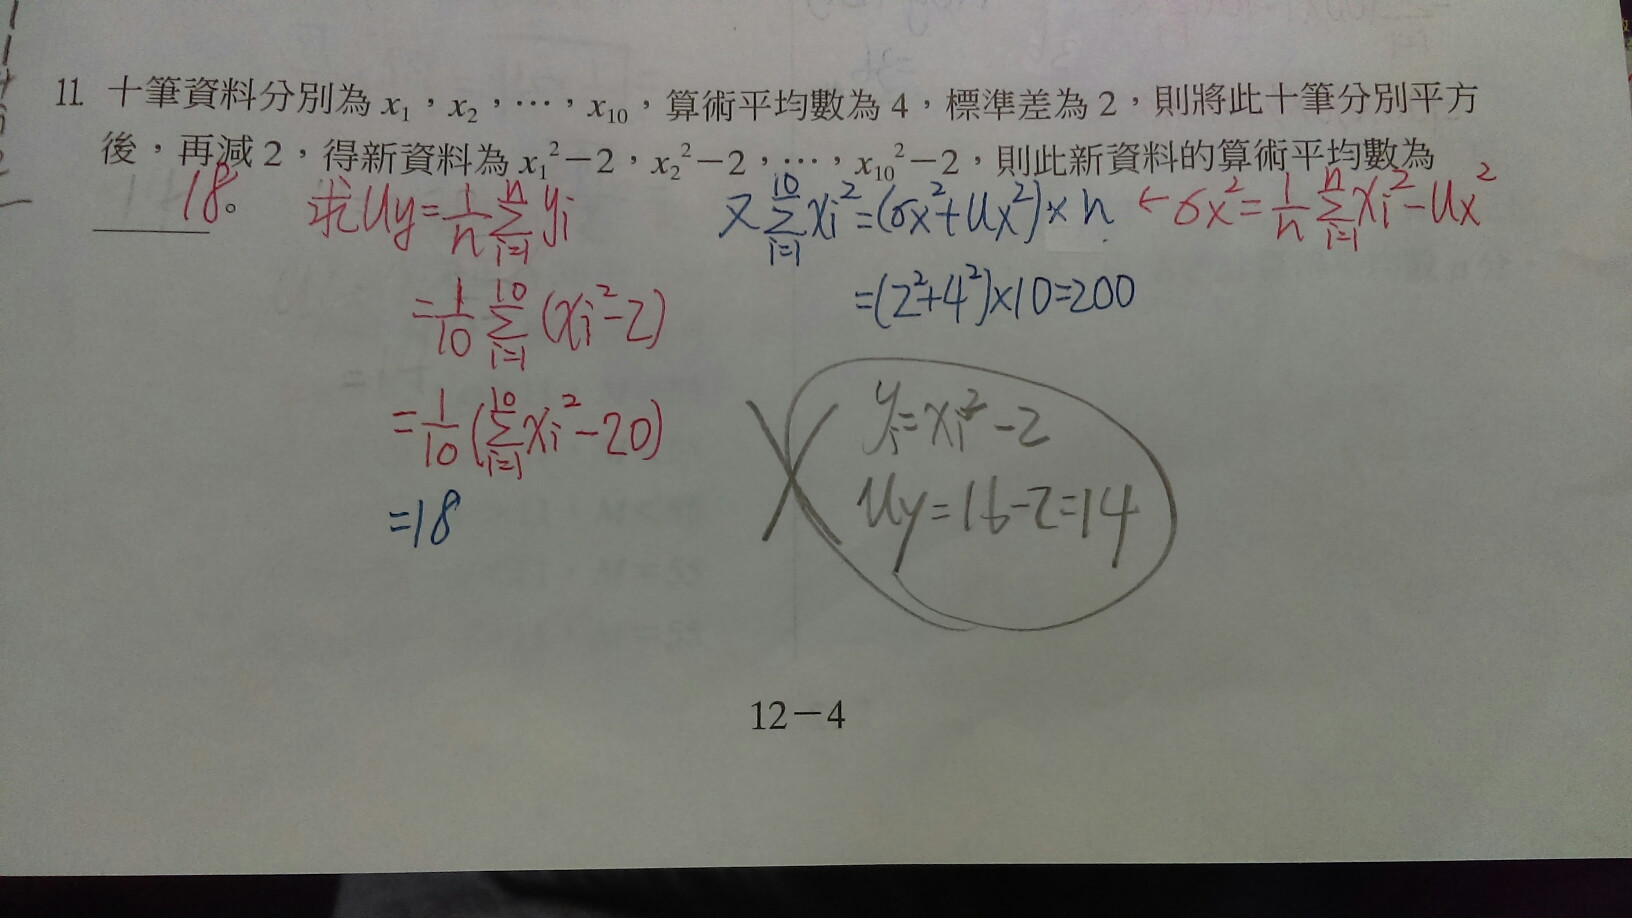 11. 十筆資料分別為 x₁，x₂，⋯，x₁₀，算術平均數為 4，標準差為 2，則將此十筆分別平方
後，再減 2，得新資料為 x₁²－2，x₂²－2，⋯，x₁₀²－2，則此新資料的算術平均數為
18。
求 Uy = 1/n Σ(i=1, n) yi
= 1/10 Σ(i=1, 10) (xi² - 2)
= 1/10 (Σ(i=1, 10) xi² - 20)
= 18
又 Σ(i=1, 10) xi² = (σx² + Ux²) × n ← σx² = 1/n Σ(i=1, n) xi² - Ux²
= (2² + 4²) × 10 = 200
yi = xi² - 2
Uy = 16 - 2 = 14
12－4